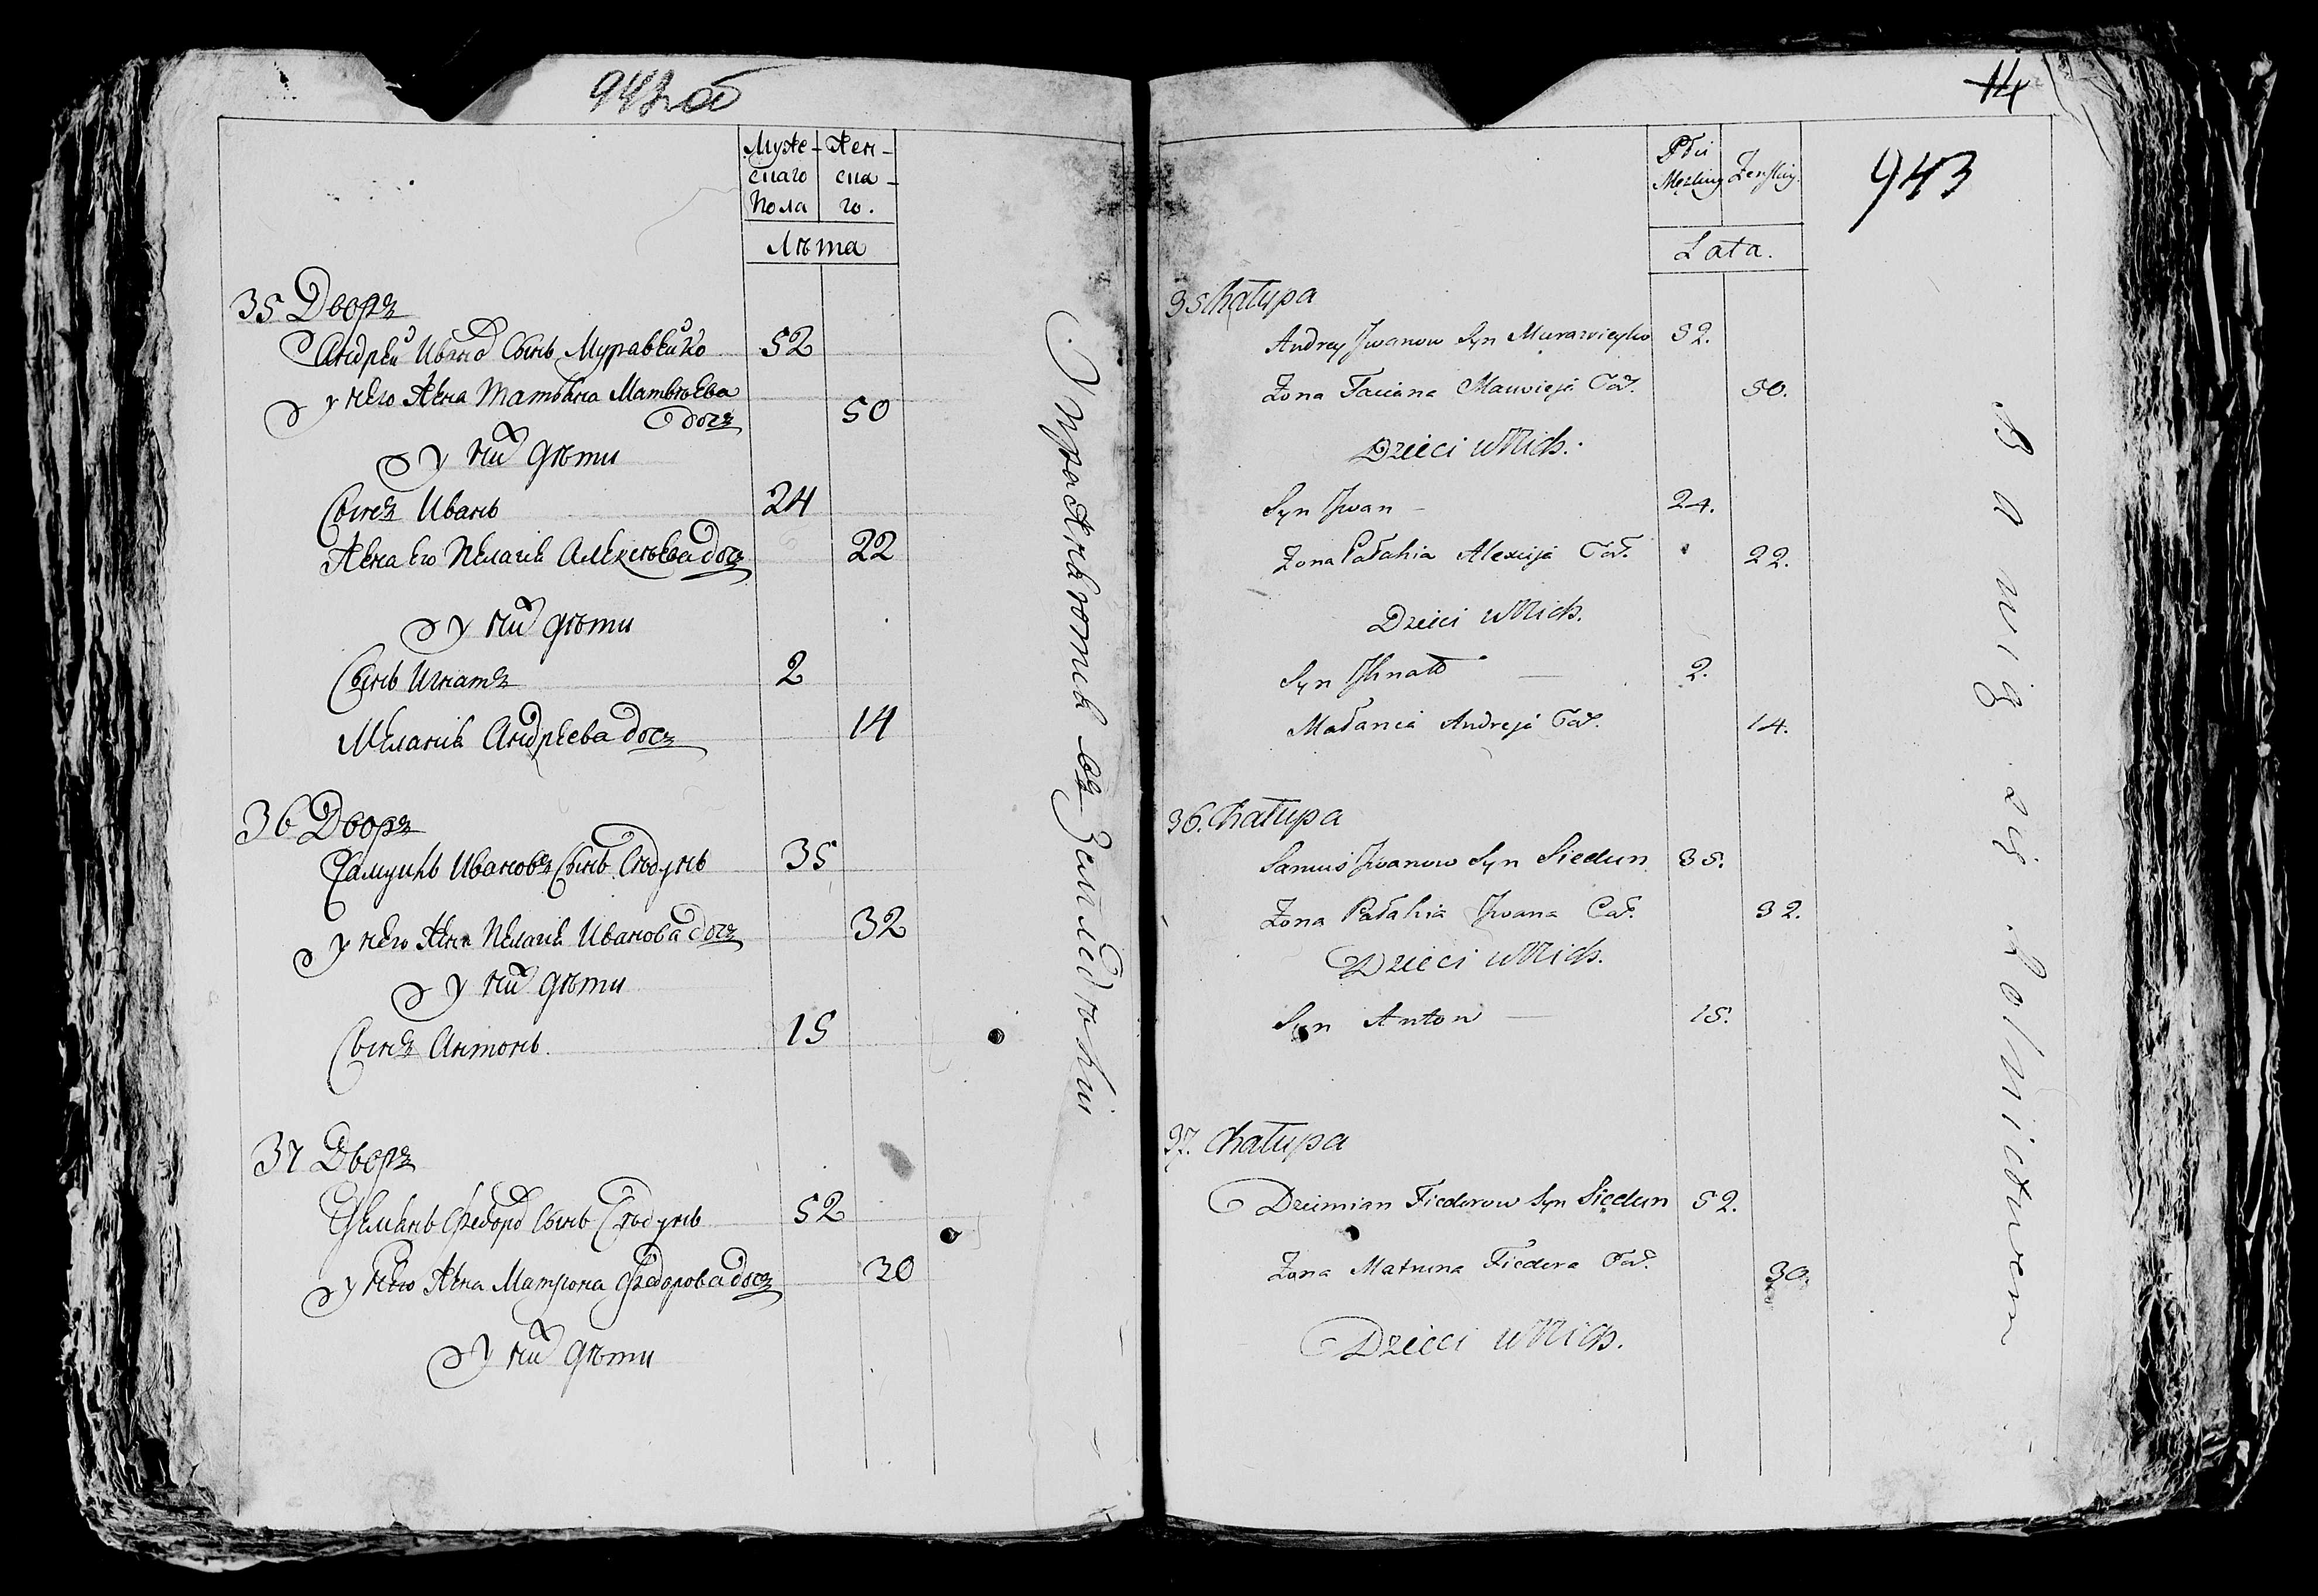 942 об
Муже-
скаго
пола
Жен-
ска-
го.
Лѣта
35 Дворъ
Андрей Иванов Сынъ Муравейко 52
у него Жена Татьяна Матвѣева
дочь 50
у них дѣти
Сынъ Иванъ 24
Жена его Пелагия Алексѣева дочь 22
у них дѣти
Сынъ Игнатъ 2
Мелания Андреева дочь 14
36 Дворъ
Самуилъ Ивановъ Сынъ Сѣдунъ 35
у него Жена Пелагия Иванова дочь 32
у них дѣти
Сынъ Антонъ 15
37 Дворъ
Демянъ Федоров Сынъ Сѣдунъ 52
у него Жена Матрона Федорова дочь 30
у них дѣти
Упражняются въ Земледѣлии
14
943
Płci
Męzkiey
Zenskiey
Lata.
35 Chałupa
Andrey Jwanow Syn Murawieyko 52.
Zona Taciana Mawieja Cór. 50.
Dzieci u Nich.
Syn Jwan 24.
Zona Pałahia Alexieja Cór. 22.
Dzieci u Nich.
Syn Jhnat 2.
Małania Andreja Cór. 14.
36. Chałupa
Samuś Jwanow Syn Siedun 35.
Zona Pałahia Jwana Cór. 32.
Dzieci u Nich.
Syn Anton 15.
37. Chałupa
Dziemian Fiedorow Syn Siedun 52.
Zona Matruna Fiedora Cór. 30.
Dzieci u Nich.
Bawią się Rolnictwem